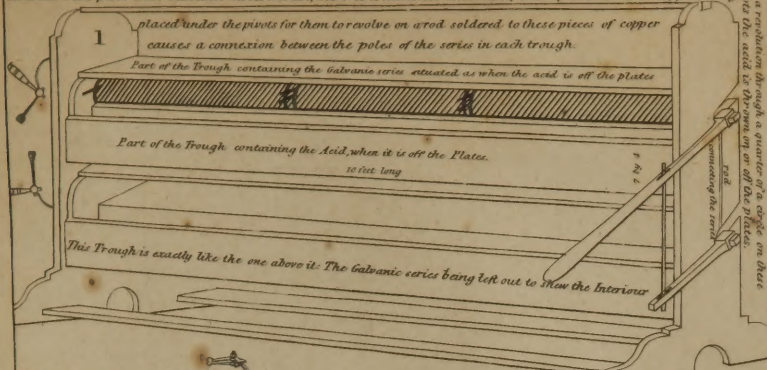 placed under the pivots for them to revolve on a rod soldered to these pieces of copper
causes a connexion between the poles of the series in each trough.
1
Part of the Trough containing the Galvanic series situated as when the acid is off the plates
Part of the Trough containing the Acid, when it is off the Plates.
10 feet long
This Trough is exactly like the one above it: The Galvanic series being left out to shew the Interiour
rod
connecting the series
a revolution through a quarter of a circle on these
the acid is thrown on or off the plates.